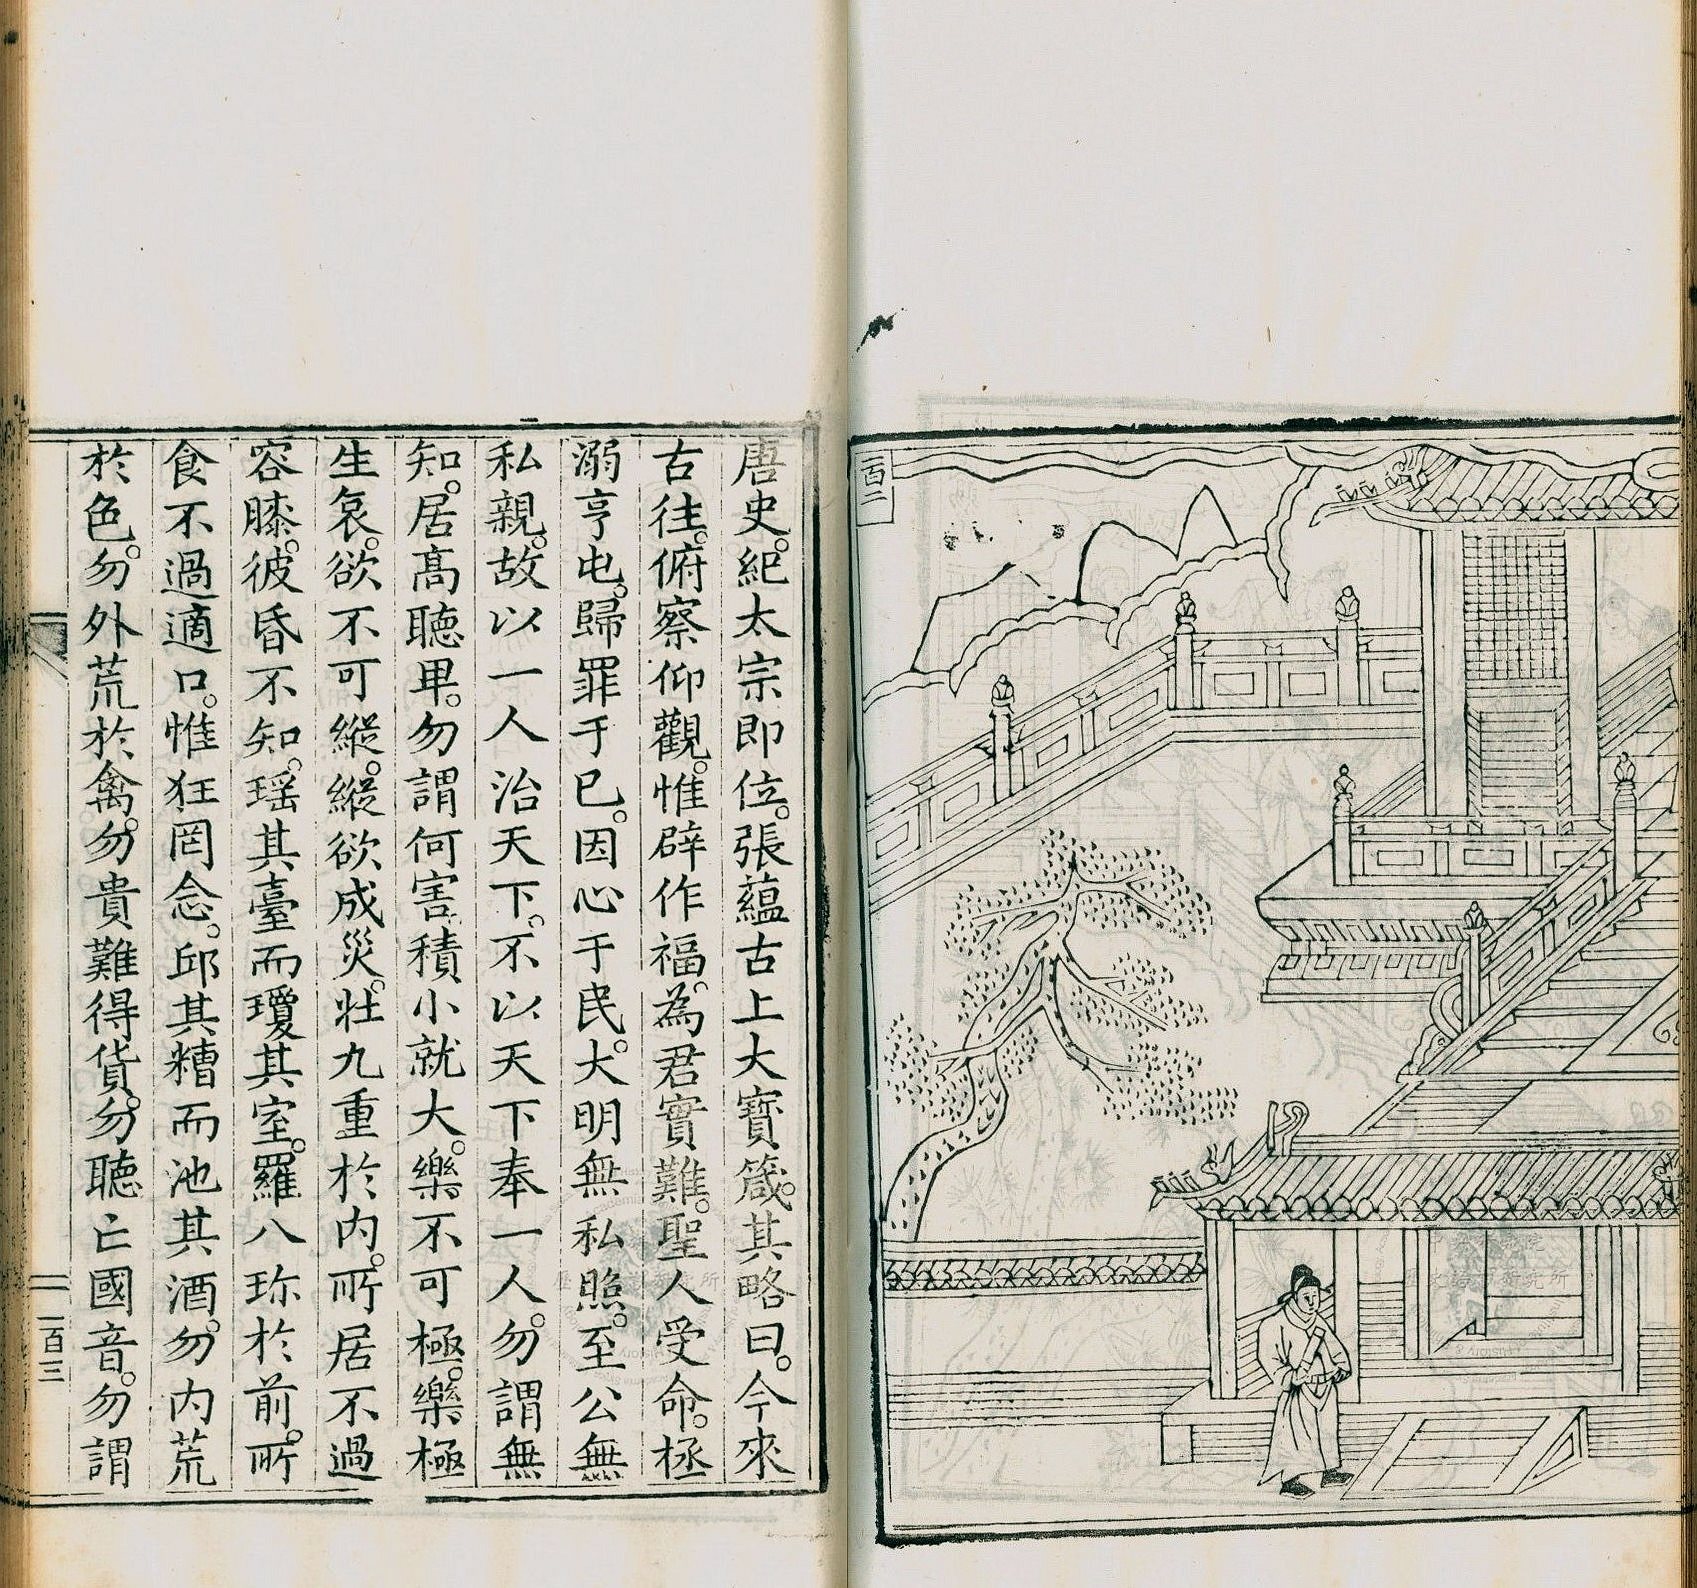 百二
唐史。紀太宗即位。張蘊古上大寶箴。其略曰。今來
古往。俯察仰觀。惟辟作福。為君實難。聖人受命。拯
溺亨屯。歸罪于已。因心于民。大明無私照。至公無
私親。故以一人治天下。不以天下奉一人。勿謂無
知。居高聽卑。勿謂何害。積小就大。樂不可極。樂極
生哀。欲不可縱。縱欲成災。壯九重於内。所居不過
容膝。彼昏不知。瑶其臺而瓊其室。羅八珎於前。所
食不過適口。惟狂罔念。邱其糟而池其酒。勿内荒
於色。勿外荒於禽。勿貴難得貨。勿聽亡國音。勿謂
一百三